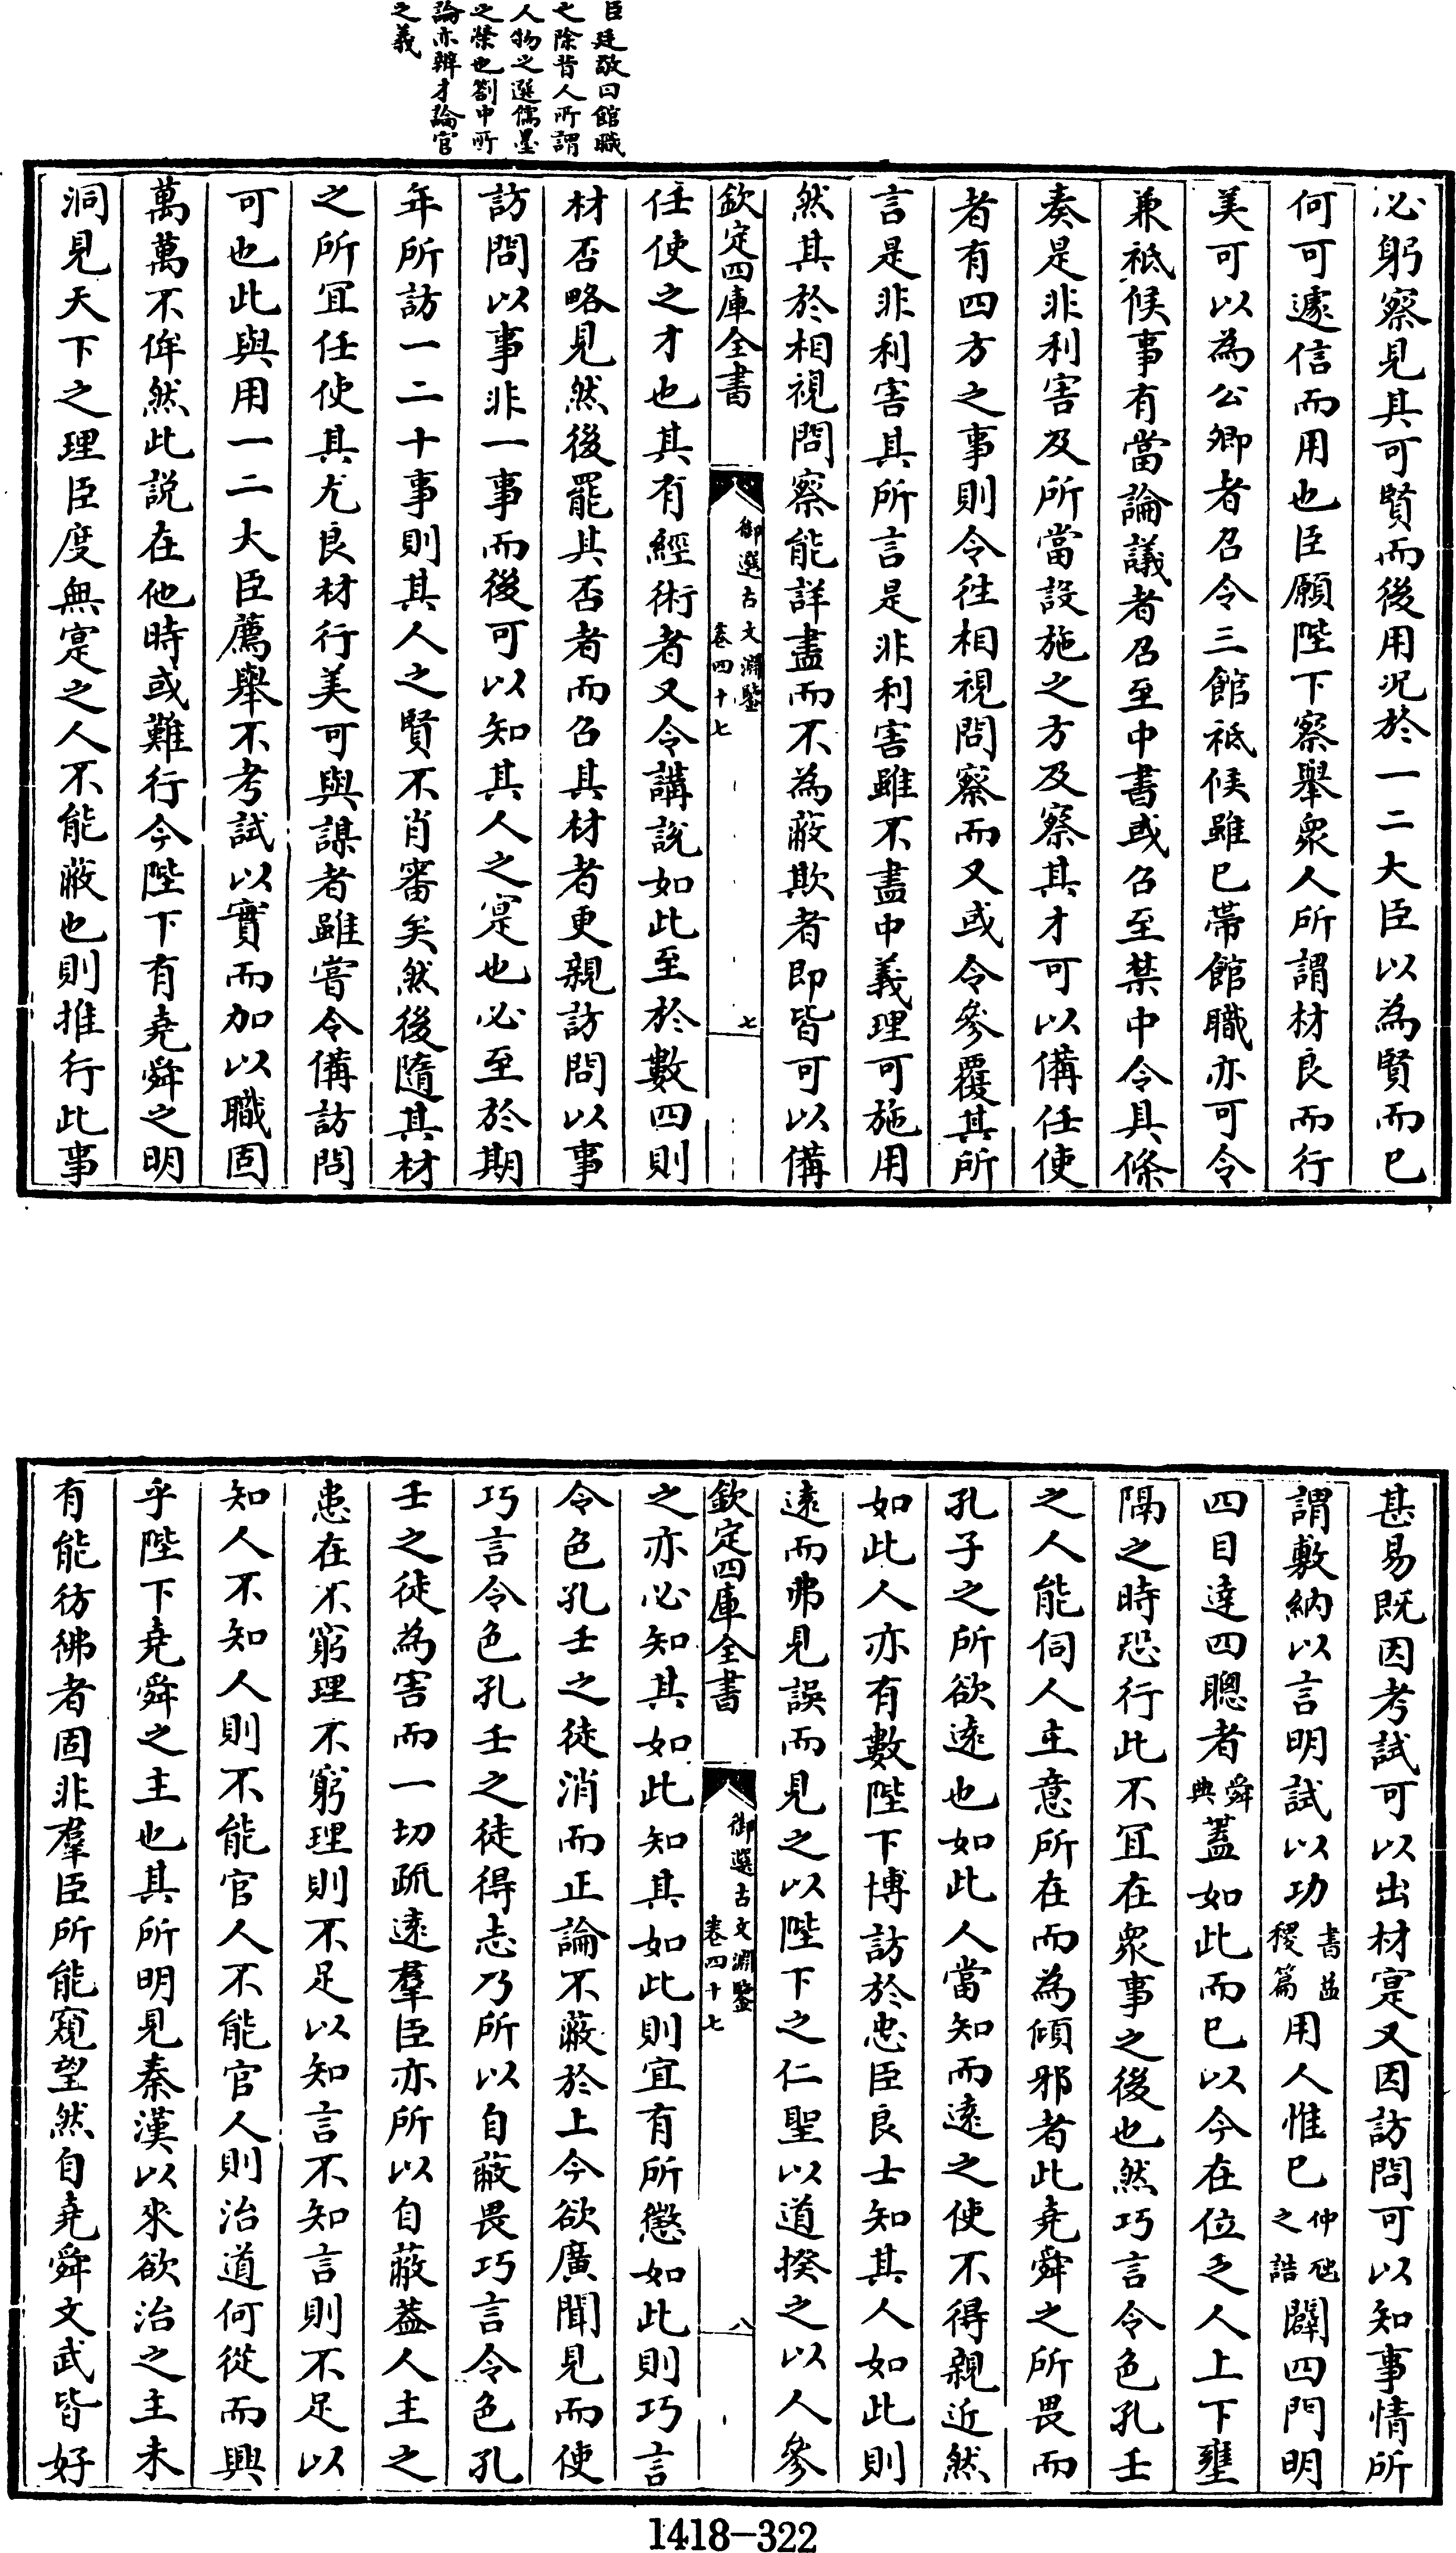 臣廷敬曰館職
之除昔人所謂
人物之選儒墨
之榮也劄中所
論亦辨才論官
之義
必躬察見其可賢而後用况於一二大臣以為賢而已
何可遽信而用也臣願陛下察舉衆人所謂材良而行
美可以為公卿者召令三館祗候雖已帶館職亦可令
兼祗候事有當論議者召至中書或召至禁中令具條
奏是非利害及所當設施之方及察其才可以備任使
者有四方之事則令徃相視問察而又或令參覆其所
言是非利害其所言是非利害雖不盡中義理可施用
然其於相視問察能詳盡而不為蔽欺者即皆可以備
欽定四庫全書
御選古文淵鑒
卷四十七
七
任使之才也其有經術者又令講說如此至於數四則
材否略見然後罷其否者而召其材者更親訪問以事
訪問以事非一事而後可以知其人之寔也必至於期
年所訪一二十事則其人之賢不肖審矣然後隨其材
之所冝任使其尤良材行美可與謀者雖嘗令備訪問
可也此與用一二大臣薦舉不考試以實而加以職固
萬萬不侔然此說在他時或難行今陛下有堯舜之明
洞見天下之理臣度無寔之人不能蔽也則推行此事
甚易既因考試可以出材寔又因訪問可以知事情所
謂敷納以言明試以功書益稷篇用人惟已仲虺之誥闢四門明
四目達四聰者舜典蓋如此而已以今在位乏人上下壅
隔之時恐行此不冝在衆事之後也然巧言令色孔壬
之人能伺人主意所在而為傾邪者此堯舜之所畏而
孔子之所欲遠也如此人當知而遠之使不得親近然
如此人亦有數陛下博訪於忠臣良士知其人如此則
遠而弗見誤而見之以陛下之仁聖以道揆之以人參
欽定四庫全書
御選古文淵鑒
卷四十七
八
之亦必知其如此知其如此則宜有所懲如此則巧言
令色孔壬之徒消而正論不蔽於上今欲廣聞見而使
巧言令色孔壬之徒得志乃所以自蔽畏巧言令色孔
壬之徒為害而一切疏遠羣臣亦所以自蔽葢人主之
患在不窮理不窮理則不足以知言不知言則不足以
知人不知人則不能官人不能官人則治道何從而興
乎陛下堯舜之主也其所明見秦漢以來欲治之主未
有能彷彿者固非羣臣所能窺望然自堯舜文武皆好
1418-322